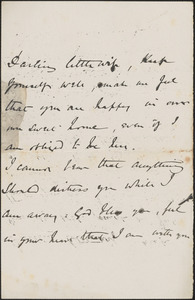 Darling little wife, Keep
yourself well, make me feel
that you are happy in our
own sweet home, even if I
am obliged to be here.
I cannot bear that anything
should distress you while I
am away. God bless you, feel
in your heart that I am with you